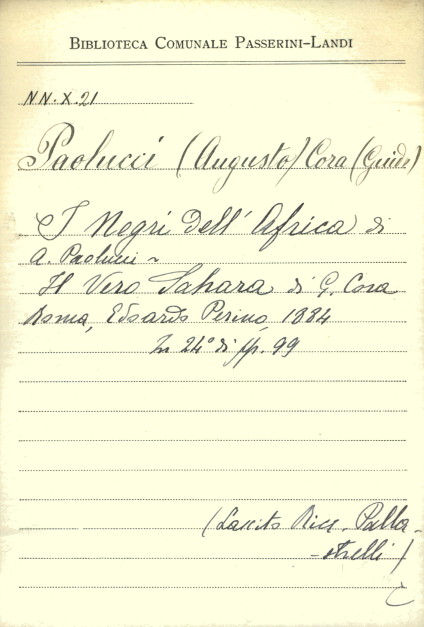 BIBLIOTECA COMUNALE PASSERINI-LANDI
NN. X. 21
Paolucci (Augusto) Cora (Guido)
I Negri dell' Africa di
A. Paolucci ~
Il Vero Sahara di G. Cora
Roma, Edoardo Perino, 1884
In 24° di pp. 99
(Lascito Ricc. Palla-
-strelli)